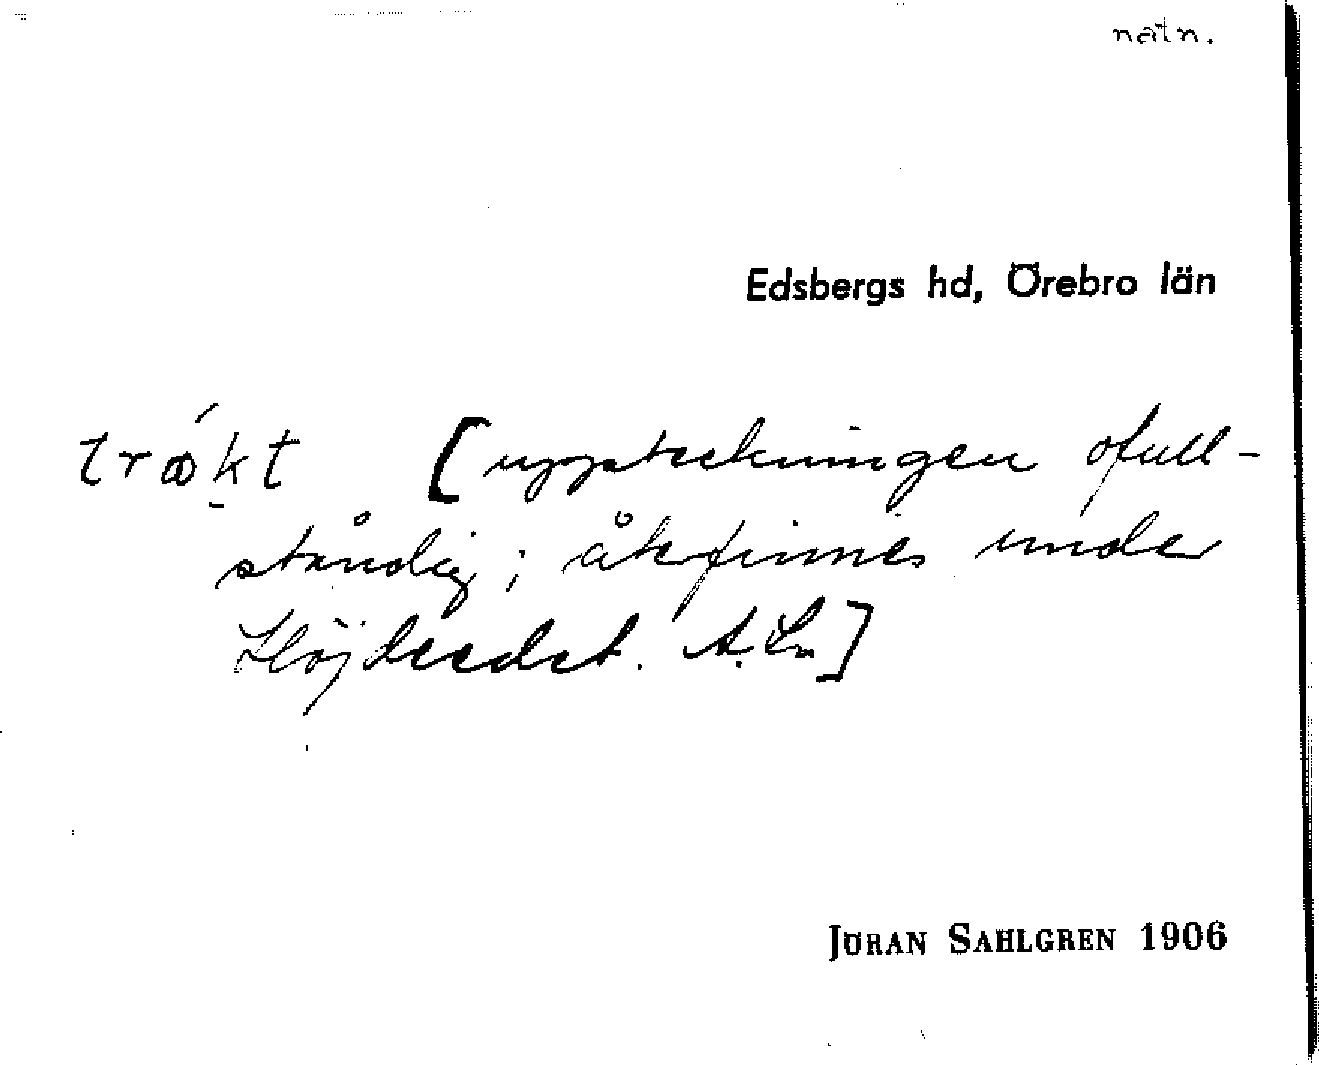 natn.
Edsbergs hd, Örebro län
[uppteckningen ofull-
ständig; återfinnes under
A. Ln]
JÖRAN SAHLGREN 1906